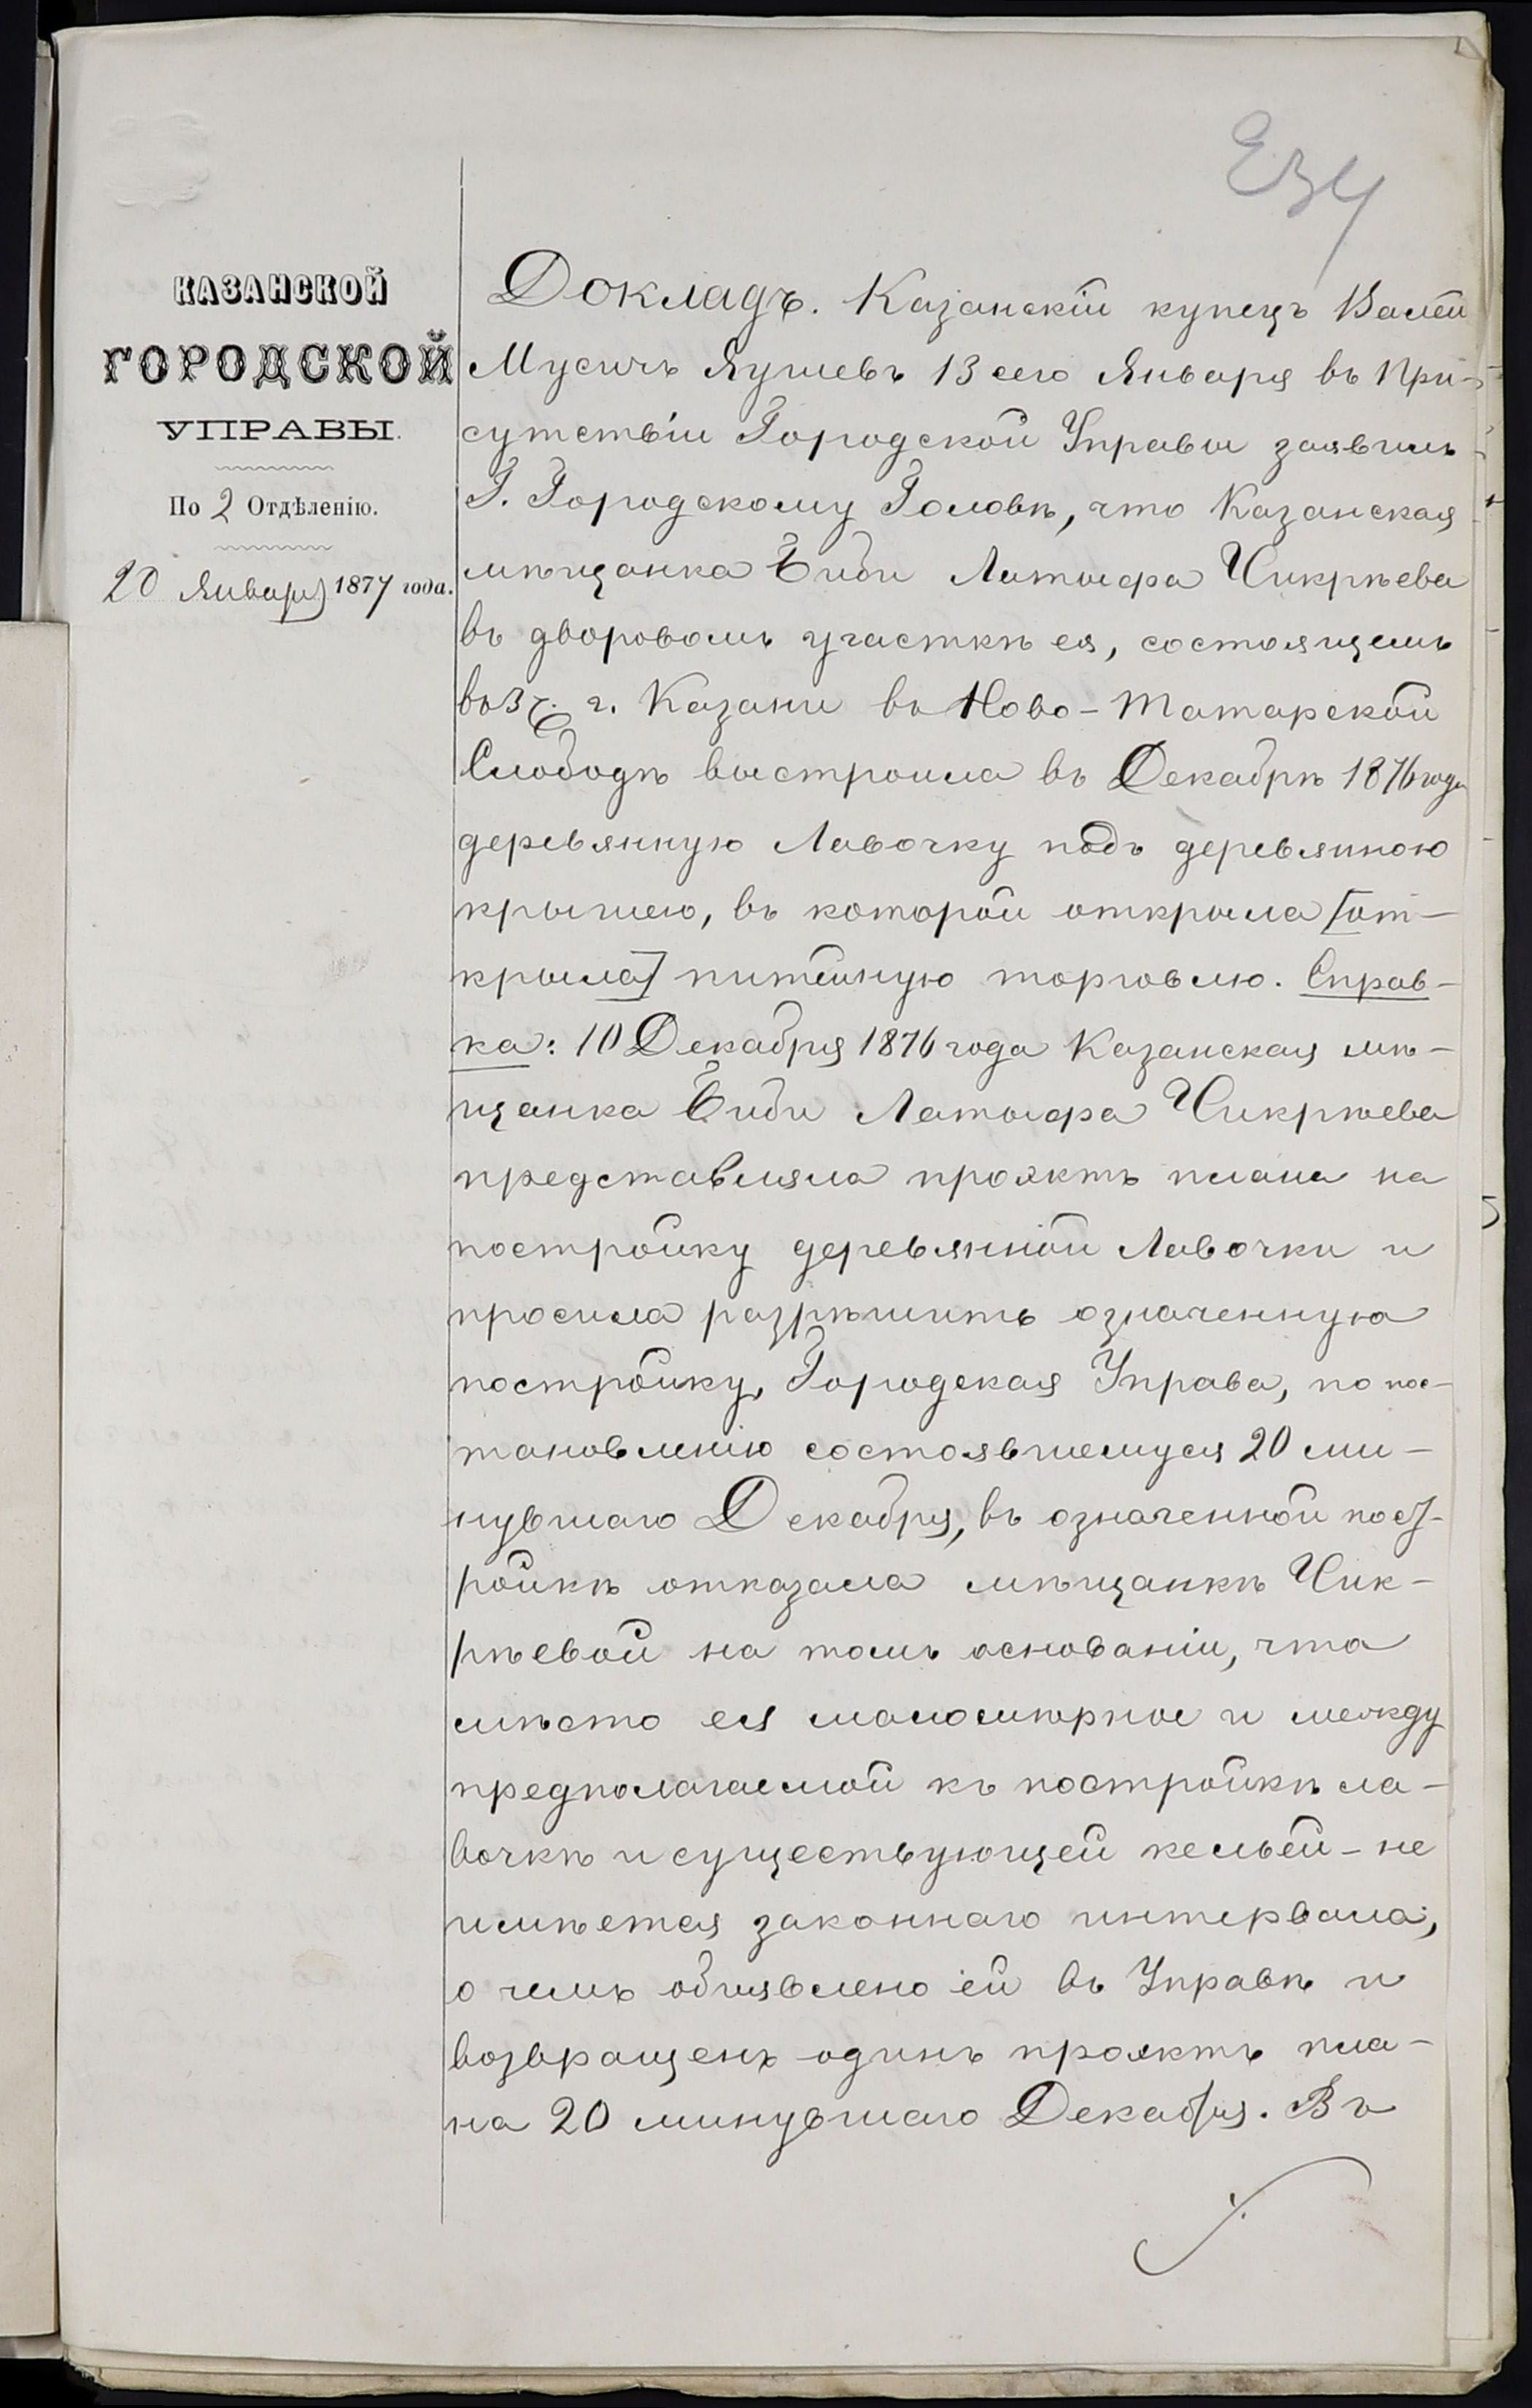 Езу
КАЗАНСКОЙ
ГОРОДСКОЙ
УПРАВЫ.
По 2 Отдѣленію.
20 Января 1877 года.
Докладъ. Казанскій купецъ Валей
Мусичъ Яушевъ 13 сего Января въ При-
сутствіи Городской Управы заявилъ
Г. Городскому Головѣ, что Казанская
мѣщанка Биби Латыфа Чикрѣева
въ дворовомъ участкѣ ея, состоящемъ
въ 3 ч. г. Казани въ Ново-Татарской
Слободѣ выстроила въ Декабрѣ 1876 года
деревянную Лавочку подъ деревянною
крышею, въ которой открыла [от-
крыла] питейную торговлю. Справ-
ка: 10 Декабря 1876 года Казанская мѣ-
щанка Биби Латыфа Чикрѣева
представляла проэктъ плана на
постройку деревянной Лавочки и
просила разрѣшить означенную
постройку, Городская Управа, по пос-
тановленію состоявшемуся 20 ми-
нувшаго Декабря, въ означенной пост-
ройкѣ отказала мѣщанкѣ Чик-
рѣевой на томъ основаніи, что
мѣсто ея маломѣрное и между
предполагаемой къ постройкѣ ла-
вочкѣ и существующей кельей - не
имѣется законнаго интервала,
о чемъ объявлено ей въ Управѣ и
возвращенъ одинъ проэктъ пла-
на 20 минувшаго Декабря. Въ